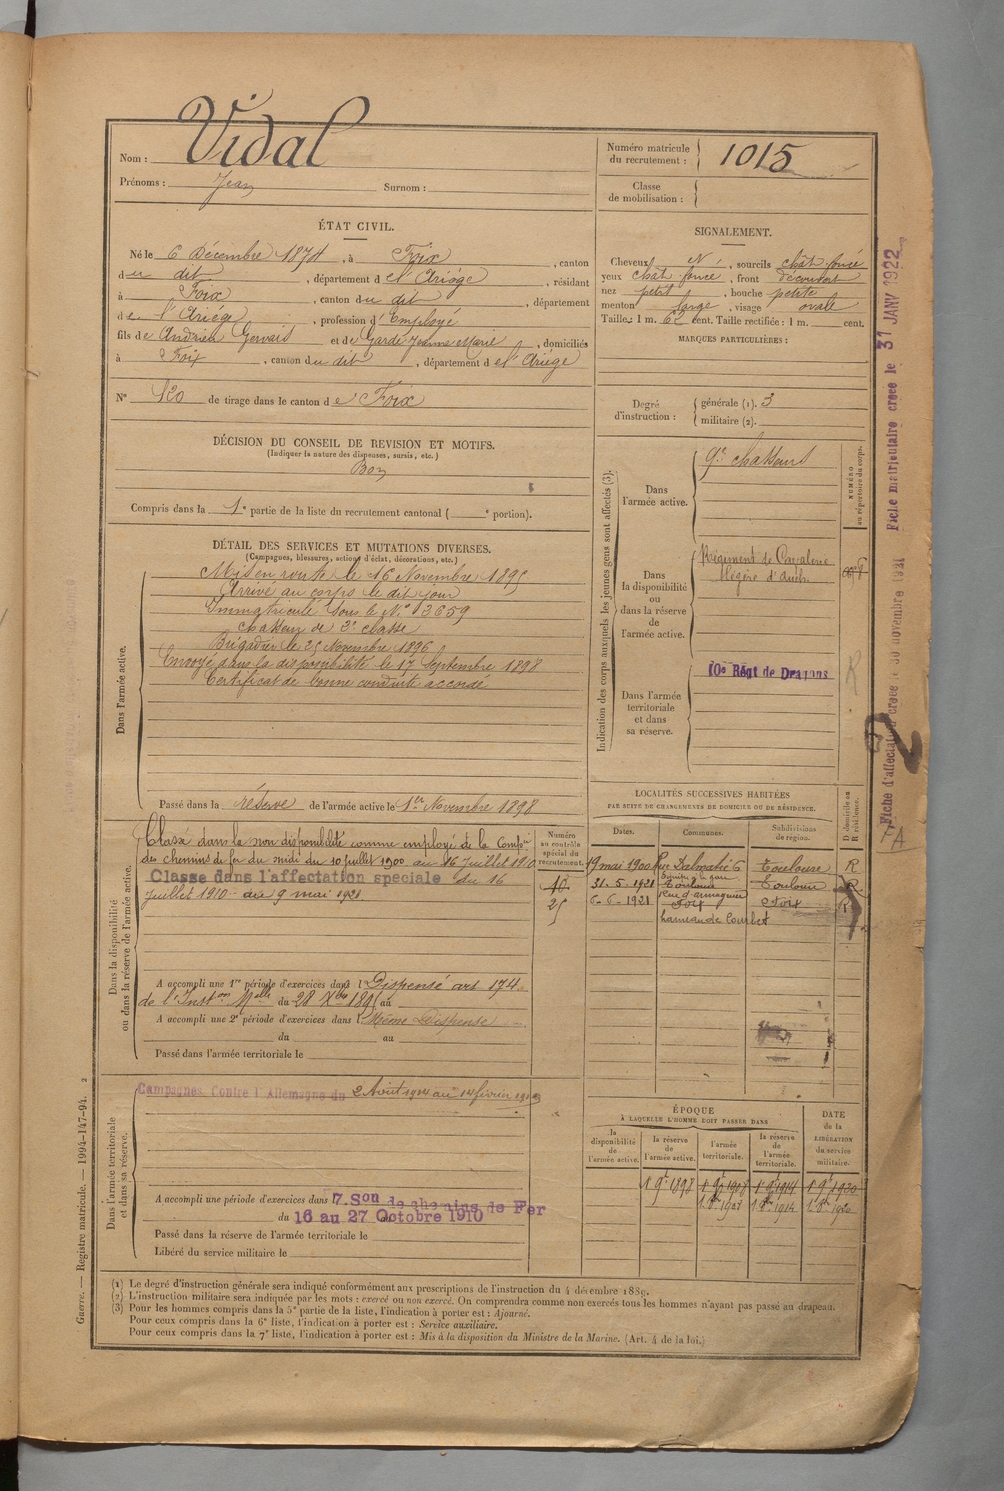 Nom : Vidal
Prénoms : Jean Surnom :
Numéro matricule du recrutement : 1015
Classe de mobilisation :
ÉTAT CIVIL.
Né le 6 Décembre 1874, à Foix, canton
du dit, département de l'Ariège, résidant
à Foix, canton du dit, département
de l'Ariège, profession d'Employé
fils de Andrieu Gervais et de Garde Jeanne Marie, domiciliés
à Foix, canton du dit, département de l'Ariège
N° 120 de tirage dans le canton de Foix
DÉCISION DU CONSEIL DE REVISION ET MOTIFS.
(Indiquer la nature des dispenses, sursis, etc.)
Bon
Compris dans la 1e partie de la liste du recrutement cantonal ( e portion).
SIGNALEMENT.
Cheveux , sourcils chât foncé
yeux chât foncé, front découvert
nez petit, bouche petite
menton large, visage ovale
Taille : 1 m. 62 cent. Taille rectifiée : 1 m. cent.
MARQUES PARTICULIÈRES :
Degré d'instruction : générale (1). 3
militaire (2).
DÉTAIL DES SERVICES ET MUTATIONS DIVERSES.
(Campagnes, blessures, actions d'éclat, décorations, etc.)
Dans l'armée active.
Mis en route le 16 Novembre 1895
Arrivé au corps le dit jour
Immatriculé sous le N° 3659
chasseur de 2e classe
Brigadier le 25 Novembre 1896
Envoyé dans la disponibilité le 17 Septembre 1898
Certificat de bonne conduite accordé
Passé dans la réserve de l'armée active le 1er Novembre 1898
Indication des corps auxquels les jeunes gens sont affectés (3).
NUMÉRO au répertoire du corps.
Dans l'armée active.
9e chasseurs
Dans la disponibilité ou dans la réserve de l'armée active.
Régiment de Cavalerie
légère d'Auch
Dans l'armée territoriale et dans sa réserve.
10e Régt de Dragons
R
Fiche matriculaire créée le 31 JANV 1922
Fiche d'affectation créée le 30 novembre 1921
Dans la disponibilité ou dans la réserve de l'armée active.
Classé dans la non disponibilité comme employé de la Compie
des chemins de fer du midi du 10 juillet 1900 au 16 juillet 1910
Classé dans l'affectation spéciale du 16
juillet 1910 au 9 mai 1921
Numéro au contrôle spécial du recrutement.
10
25
A accompli une 1re période d'exercices dans l Dispensé art 174
de l'Inston Melle du 28 Xbre 1895 au
A accompli une 2e période d'exercices dans l Même Dispense
du au
Passé dans l'armée territoriale le
LOCALITÉS SUCCESSIVES HABITÉES
PAR SUITE DE CHANGEMENTS DE DOMICILE OU DE RÉSIDENCE.
Dates. Communes. Subdivisions de région. D domicile ou R résidence.
19 mai 1900 Rue Dalmatié 6 Toulouse R
31-5-1921 Toulouse Toulouse R
6-6-1921 Foix Foix R
hameau de Courbet
Dans l'armée territoriale et dans sa réserve.
Campagnes Contre l'Allemagne du 2 Août 1914 au 14 février
A accompli une période d'exercices dans 7. Son de chemins de Fer
du 16 au 27 Octobre 1910
Passé dans la réserve de l'armée territoriale le
Libéré du service militaire le
ÉPOQUE
À LAQUELLE L'HOMME DOIT PASSER DANS
la disponibilité de l'armée active. la réserve de l'armée active. l'armée territoriale. la réserve de l'armée territoriale.
DATE de la LIBÉRATION du service militaire.
(1) Le degré d'instruction générale sera indiqué conformément aux prescriptions de l'instruction du 4 décembre 1889.
(2) L'instruction militaire sera indiquée par les mots : exercé ou non exercé. On comprendra comme non exercés tous les hommes n'ayant pas passé au drapeau.
(3) Pour les hommes compris dans la 5e partie de la liste, l'indication à porter est : Ajourné.
Pour ceux compris dans la 6e liste, l'indication à porter est : Service auxiliaire.
Pour ceux compris dans la 7e liste, l'indication à porter est : Mis à la disposition du Ministre de la Marine. (Art. 4 de la loi.)
Guerre. — Registre matricule. — 1994-147-94. 2